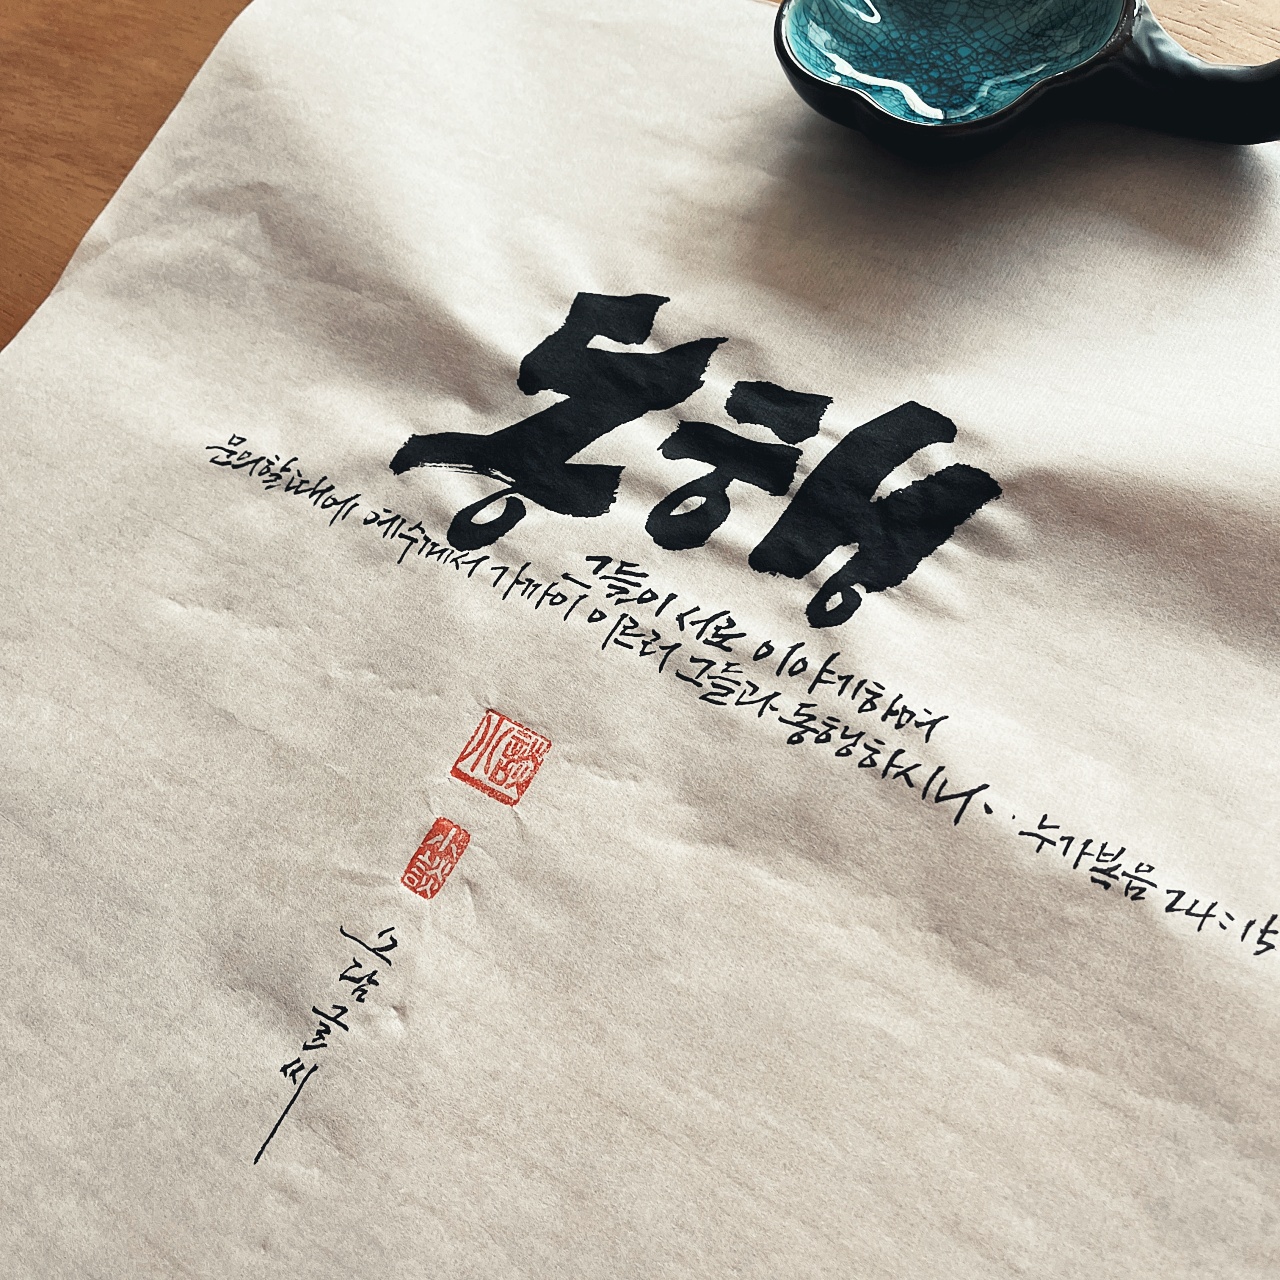 동행
그들이 서로 이야기하며
문의할 때에 예수께서 가까이 이르러 그들과 동행하시니.. 누가복음 24:15
小談
小談
소담글씨